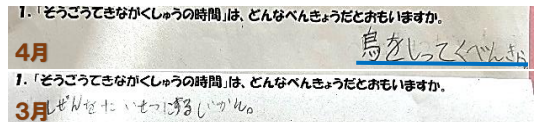 1.「そうごうてきながくしゅうの時間」は、どんなべんきょうだとおもいますか。
4月
鳥をしってくべんきょ
1.「そうごうてきながくしゅうの時間」は、どんなべんきょうだとおもいますか。
3月
しぜんをたいせつにするじかん。